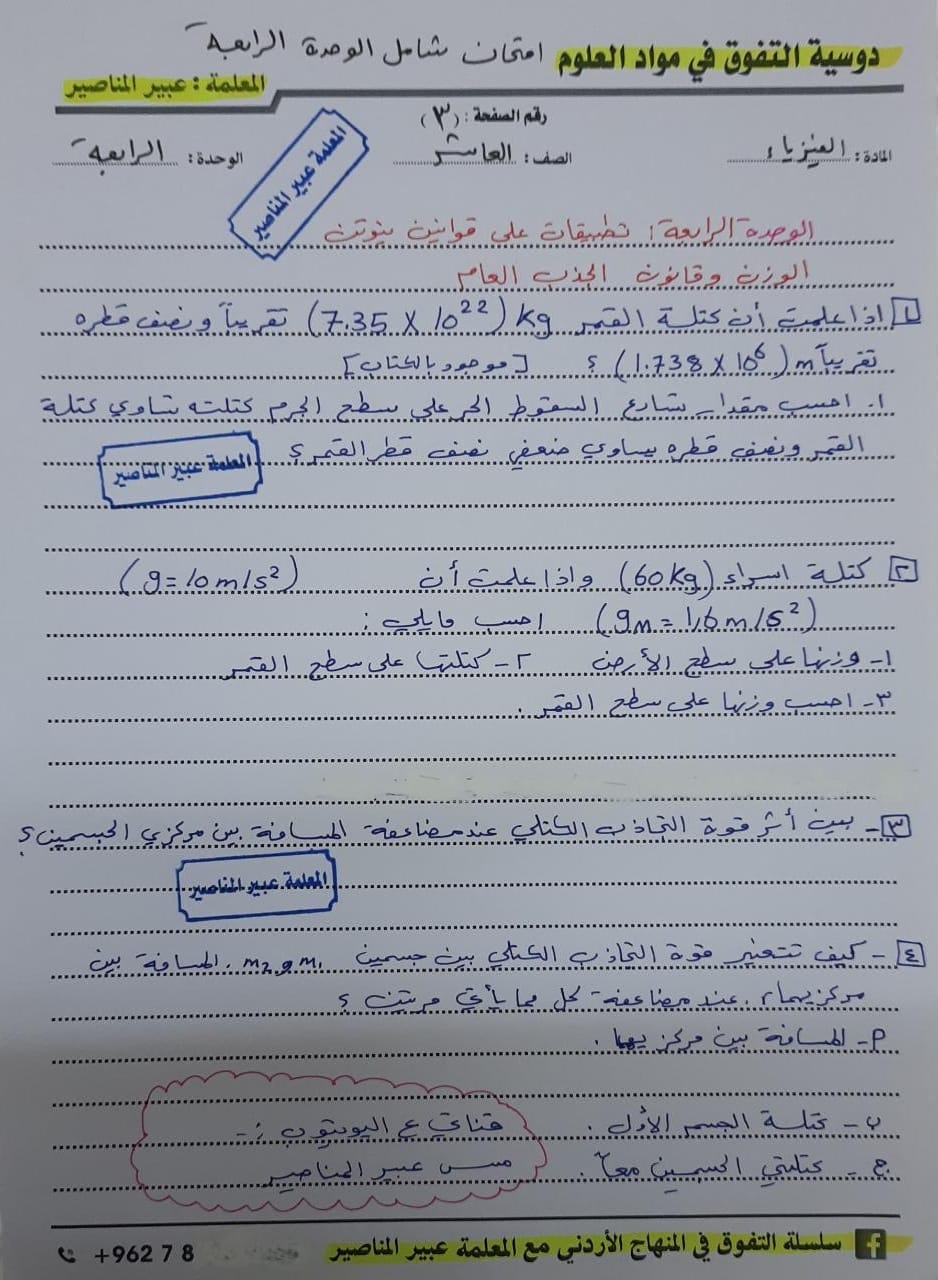 دوسية التفوق في مواد العلوم امتحان شامل الوحدة الرابعة
المعلمة : عبير المناصير
رقم الصفحة : (٣)
المادة: الفيزياء الصف: العاشر الوحدة: الرابعة
المعلمة عبير المناصير
الوحدة الرابعة: تطبيقات على قوانين نيوتن
الوزن وقانون الجذب العام
١ اذا علمت أن كتلة القمر (7.35 X 10²²) kg تقريباً ونصف قطره
تقريباً (1.738 X 10⁶) m ؟ [موجود بالكتاب]
١. احسب مقدار تسارع السقوط الحر على سطح الجرم كتلته تساوي كتلة
القمر ونصف قطره يساوي ضعفي نصف قطر القمر؟
المعلمة عبير المناصير
٢ كتلة اسراء (60 kg) واذا علمت أن (g = 10 m/s²)
(gm = 1,6 m/s²) احسب مايلي :
١- وزنها على سطح الأرض ٢- كتلتها على سطح القمر
٣- احسب وزنها على سطح القمر .
٣- بين أثر قوة التجاذب الكتلي عند مضاعفة المسافة بين مركزي الجسمين؟
المعلمة عبير المناصير
٤- كيف تتغير قوة التجاذب الكتلي بين جسمين m₁ و m₂ . المسافة بين
مركزيهما r . عند مضاعفة كل مما يأتي مرتين ؟
P- المسافة بين مركزيها .
ب- كتلة الجسم الأول .
ج- كتلتي الجسمين معاً .
قناتي ع اليوتيوب :-
مس عبير المناصير
سلسلة التفوق في المنهاج الأردني مع المعلمة عبير المناصير
+962 7 8